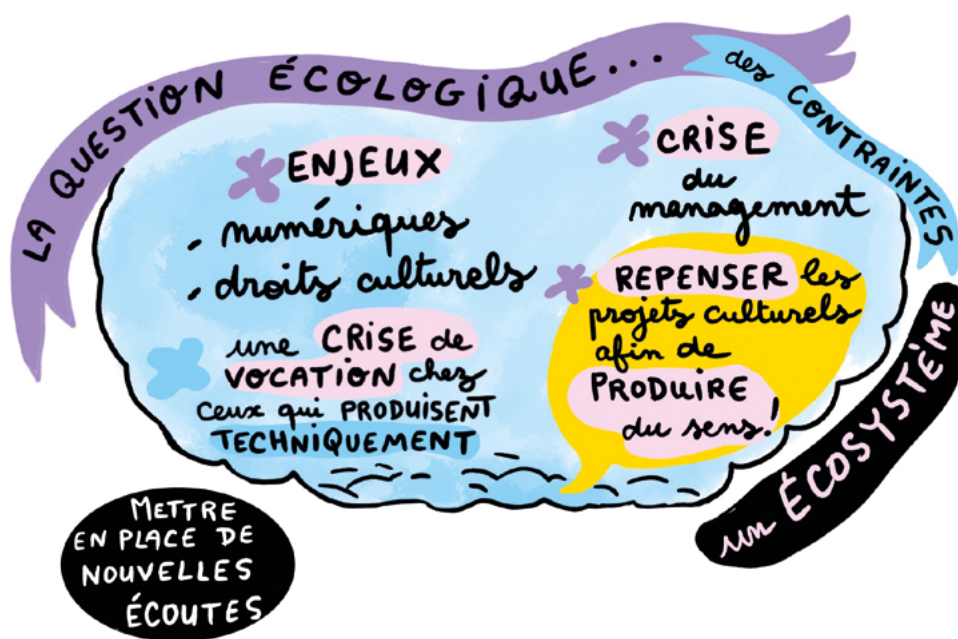 LA QUESTION ÉCOLOGIQUE...
des CONTRAINTES
ENJEUX
- numériques
- droits culturels
une CRISE de
VOCATION chez
ceux qui PRODUISENT
TECHNIQUEMENT
CRISE
du
management
REPENSER les
projets culturels
afin de
PRODUIRE
du sens!
un ÉCOSYSTÈME
METTRE
EN PLACE DE
NOUVELLES
ÉCOUTES